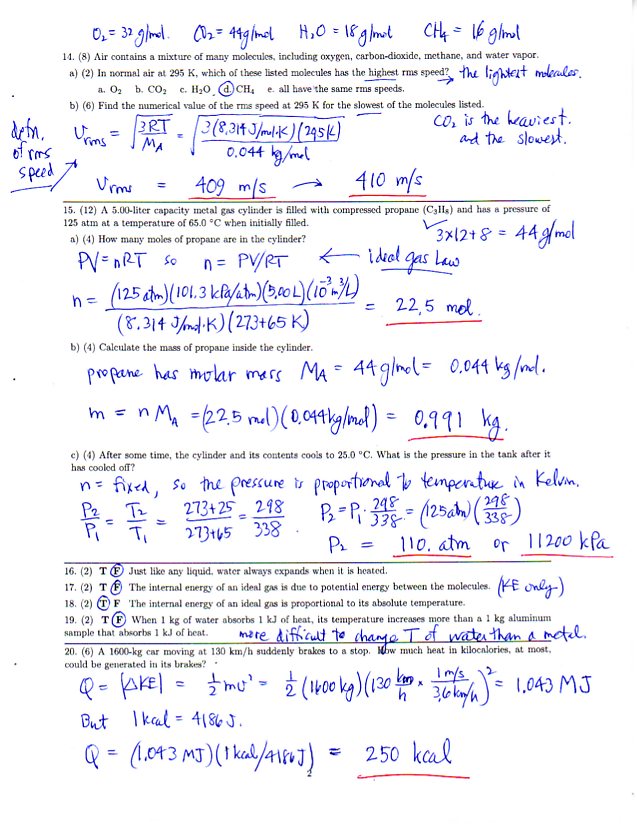 O₂ = 32 g/mol. CO₂ = 44 g/mol H₂O = 18 g/mol CH₄ = 16 g/mol
14. (8) Air contains a mixture of many molecules, including oxygen, carbon-dioxide, methane, and water vapor.
a) (2) In normal air at 295 K, which of these listed molecules has the highest rms speed? → the lightest molecules.
a. O₂ b. CO₂ c. H₂O d. CH₄ e. all have the same rms speeds.
b) (6) Find the numerical value of the rms speed at 295 K for the slowest of the molecules listed.
defn. of rms speed
v_rms = √(3RT/M_A) = √(3(8.314 J/mol·K)(295K)/0.044 kg/mol)
CO₂ is the heaviest.
and the slowest.
v_rms = 409 m/s → 410 m/s
15. (12) A 5.00-liter capacity metal gas cylinder is filled with compressed propane (C₃H₈) and has a pressure of
125 atm at a temperature of 65.0 °C when initially filled.
3×12+8 = 44 g/mol
a) (4) How many moles of propane are in the cylinder?
PV = nRT so n = PV/RT ← ideal gas Law
n = (125 atm)(101.3 kPa/atm)(5.00 L)(10⁻³ m³/L) / (8.314 J/mol·K)(273+65 K) = 22.5 mol.
b) (4) Calculate the mass of propane inside the cylinder.
propane has molar mass M_A = 44 g/mol = 0.044 kg/mol.
m = n M_A = (22.5 mol)(0.044 kg/mol) = 0.991 kg.
c) (4) After some time, the cylinder and its contents cools to 25.0 °C. What is the pressure in the tank after it
has cooled off?
n = fixed, so the pressure is proportional to temperature in Kelvin.
P₂/P₁ = T₂/T₁ = 273+25/273+65 = 298/338 P₂ = P₁·298/338 = (125 atm)(298/338)
P₂ = 110. atm or 11200 kPa
16. (2) T F Just like any liquid, water always expands when it is heated.
17. (2) T F The internal energy of an ideal gas is due to potential energy between the molecules. (KE only.)
18. (2) T F The internal energy of an ideal gas is proportional to its absolute temperature.
19. (2) T F When 1 kg of water absorbs 1 kJ of heat, its temperature increases more than a 1 kg aluminum
sample that absorbs 1 kJ of heat. more difficult to change T of water than a metal.
20. (6) A 1600-kg car moving at 130 km/h suddenly brakes to a stop. How much heat in kilocalories, at most,
could be generated in its brakes?
Q = |ΔKE| = ½mv² = ½(1600 kg)(130 km/h × 1 m/s / 3.6 km/h)² = 1.043 MJ
But 1 kcal = 4186 J.
Q = (1.043 MJ)(1 kcal/4186 J) = 250 kcal
2